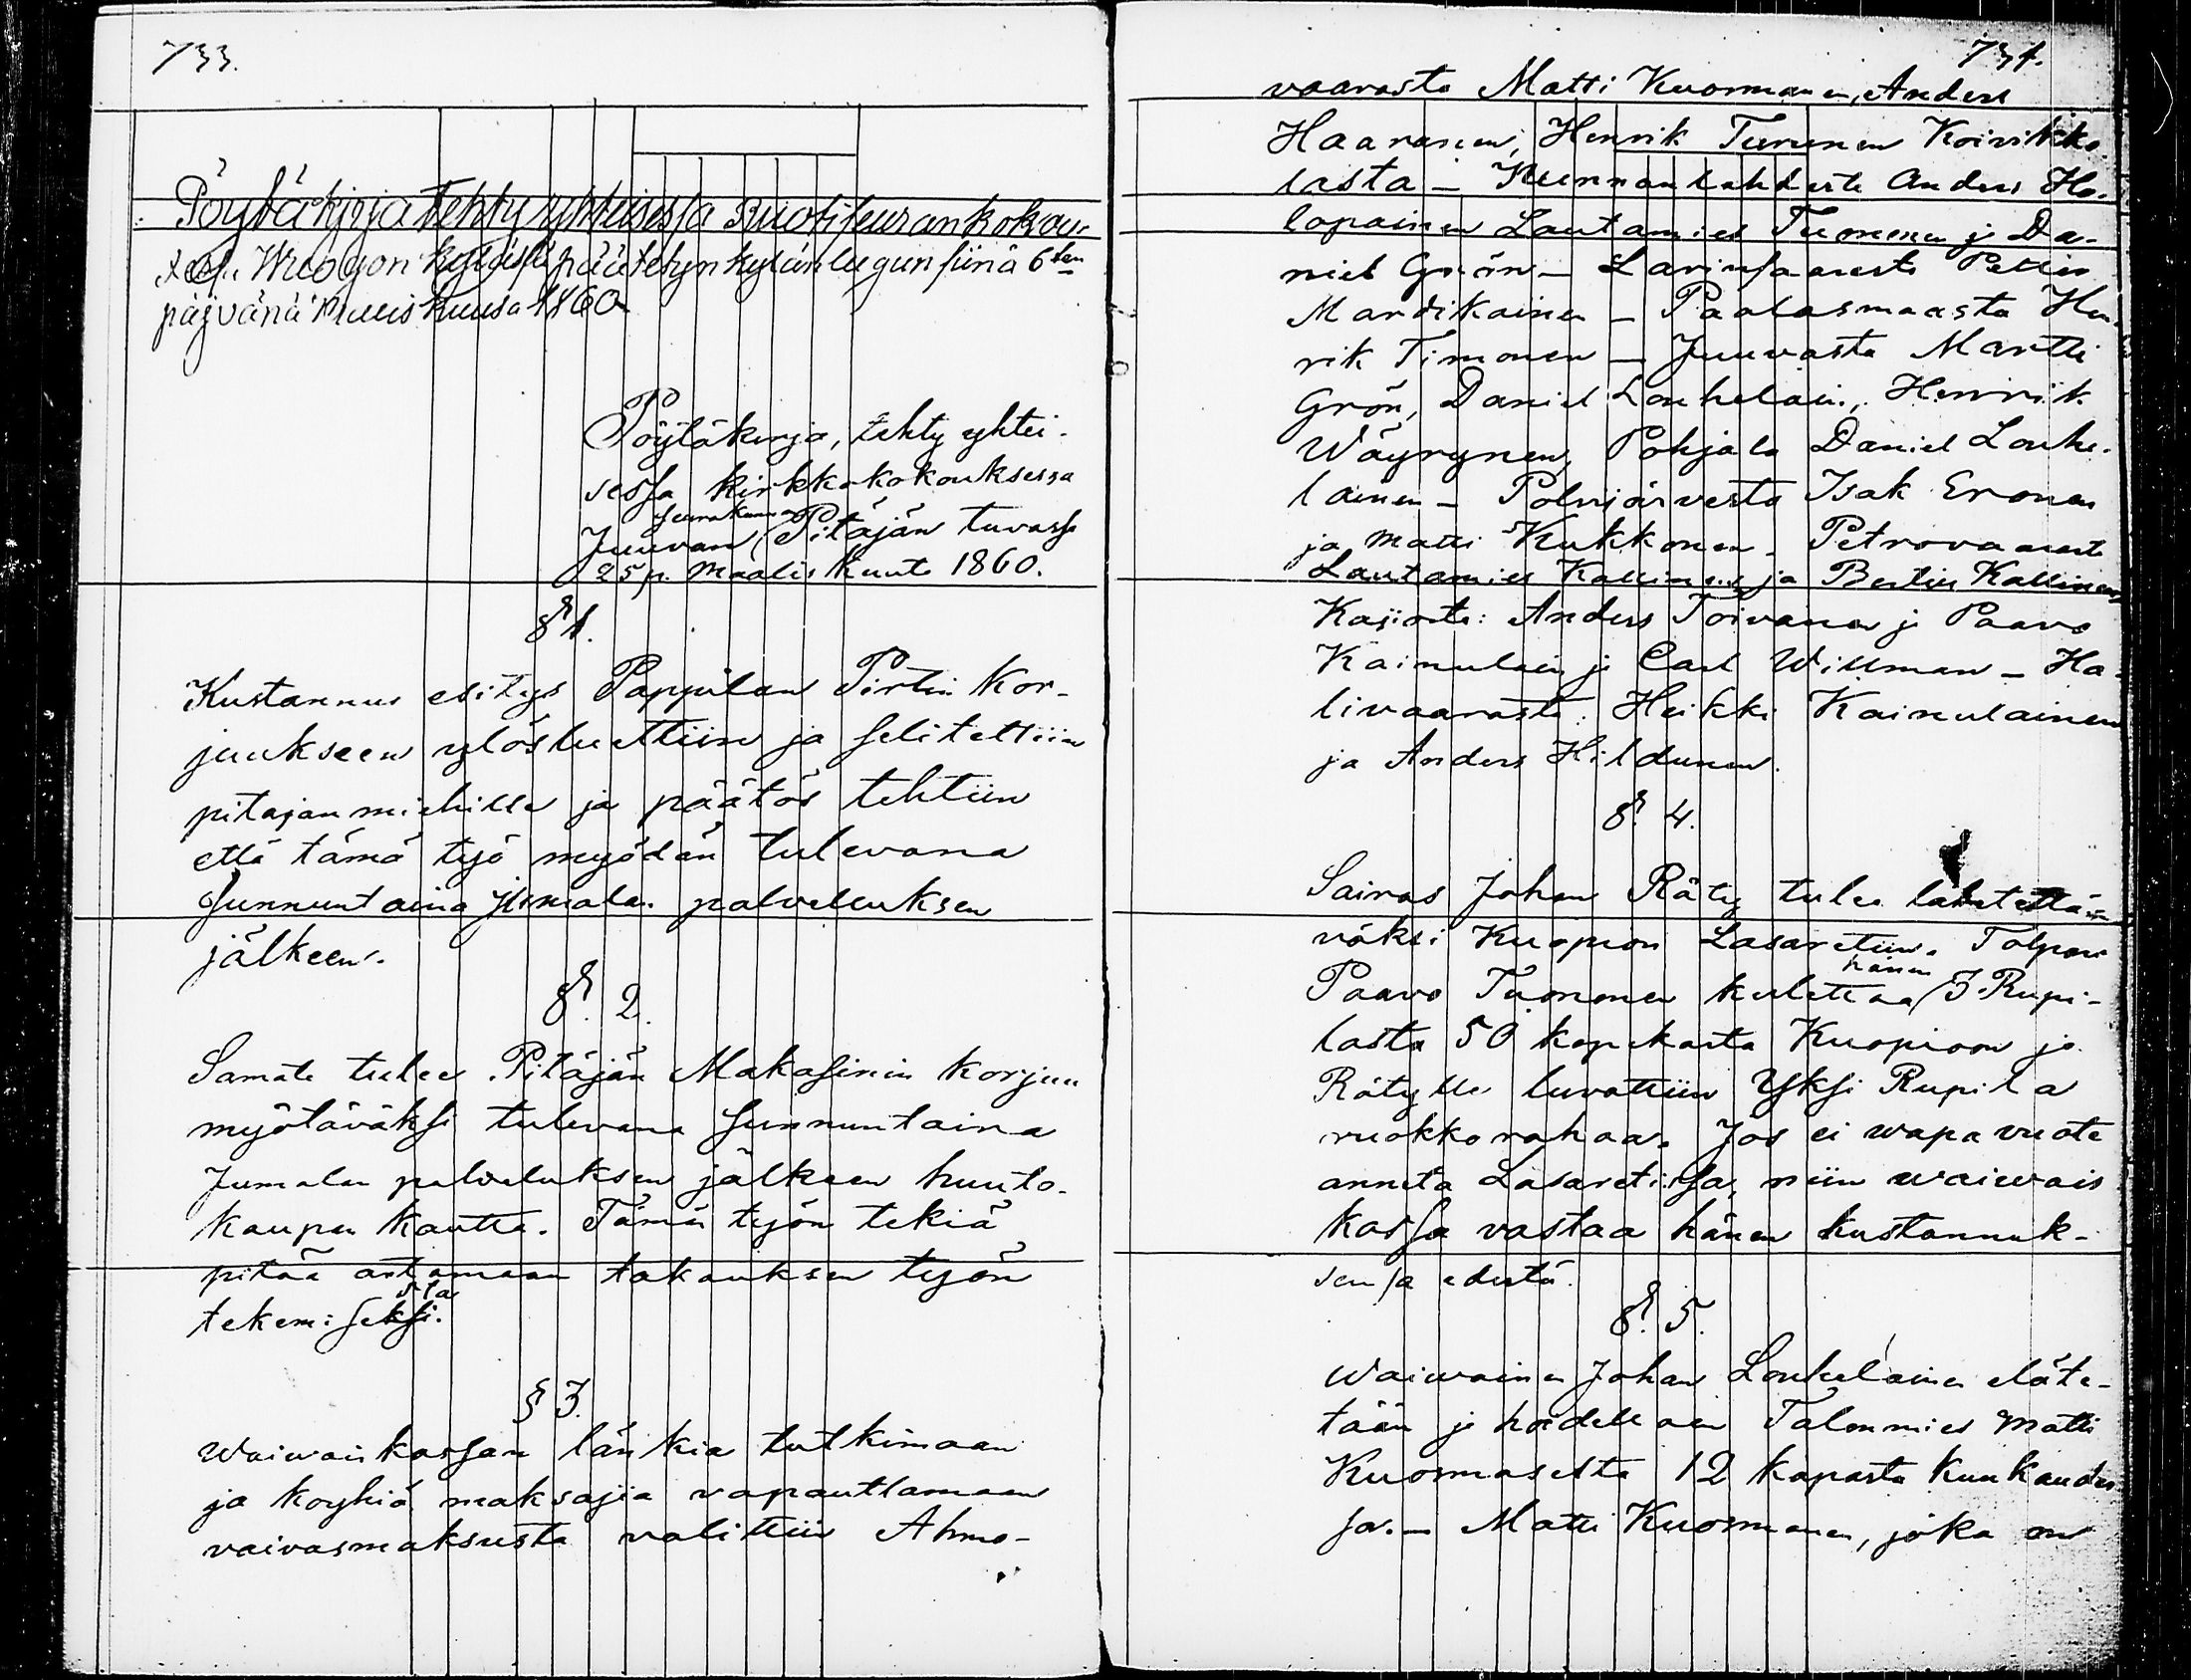 733.
Pöytäkirja tehty yhteisessä Ruotiseurankokou-
Wuogon kylässä päätetyn kylänlugun siinä 6ten
päivänä Maaliskuusa 1860
Pöytäkirja, tehty yhtei-
sessa kirkkokokouksessa
seurakunnan
Juuvan Pitäjän tuvassa
25 p. Maaliskuuta 1860.
§ 1.
Kustannus esitys Pappilan Pirtin kor-
juukseen ylösluettiin ja selitettiin
pitajanmiehille ja päätös tehtiin
että tämä työ myödän tulevana
sunnuntaina jumalan palveluuksen
jälkeen.
§. 2.
Samate tulee Pitäjän Makasinin korjuu
myötäväksi tulevana sunnuntaina
Jumalan palveluksen jälkeen huuto-
kaupan kautta. Tämän työn tekiä
pitää antamaan takauksen työn
sta
tekemiseksi.
§ 3.
Waiwaiskassan länkia tutkimaan
ja koyhiä maksajia vapauttamaan
vaivasmaksusta valittiin Ahmo-
734.
vaarasta Matti Kuosmanen, Anders
Haaranen, Henrik Turunen Koivikko
lasta – Kunnanlahdesta Anders Ho-
lopainen Lautamies Tuononen ja Da-
niel Grön – Larinsaaresta Petter
Mardikainen – Paalasmaasta Hen-
rik Timonen – Juuvasta Martti
Grön, Daniel Louhelain, Henrik
Wäyrynen, Pohjala Daniel Louhe-
lainen – Polvijärvesta Isak Eronen
ja Matti Kukkonen – Petrovaarast
Lautamies Kallinen ja Bertin Kallinen
Kajiosta: Anders Toivanen ja Paavo
Kainulain ja Carl Willman – Ha-
livaarasta: Heikki Kainulainen
ja Anders Hildunen.
§. 4.
Sairas Johan Räty tulee lähetettä-
väksi Kuopion Lasaretiin. Tolpan
hänen
Paavo Tuononen kulettaa 3 Rupi-
lasta 50 kopekasta Kuopioon ja
Rätylle luvattiin Yksi Rupila
ruokkorahaa. Jos ei wapavuote
anneta Lasaretissa, niin waiwais
kassa vastaa hänen kustannuk-
sensa edestä.
§. 5.
Waiwainen Johan Louhelainen eläte-
tään ja hoidellaan Talonmies Matti
Kuosmaselta 12 kapasta kuukaudes-
sa. – Matti Kuosmanen, joka on